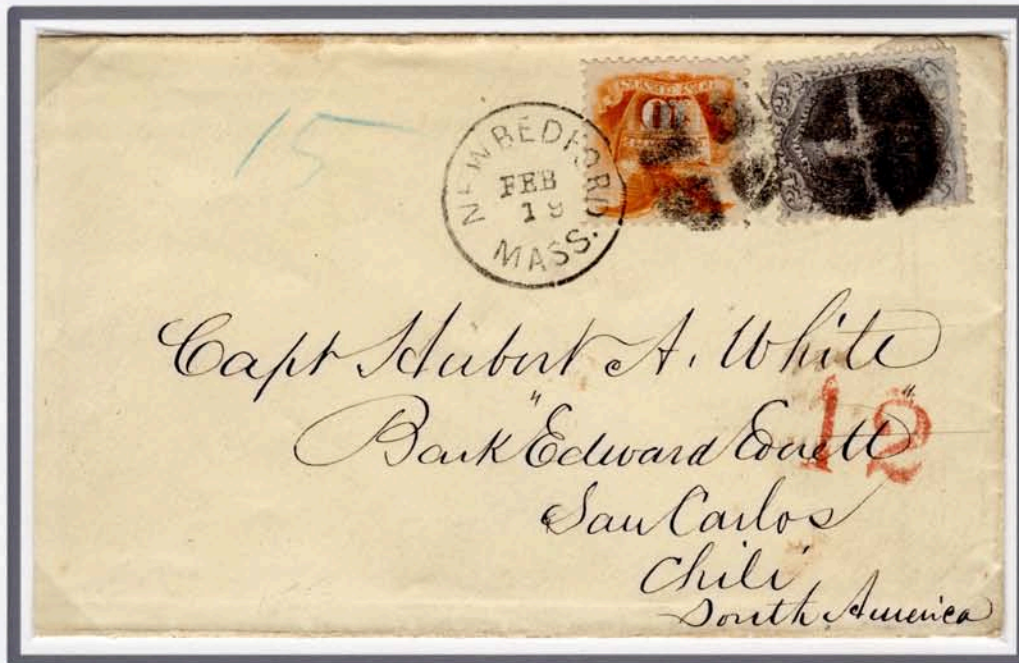 15
NEW BEDFORD
FEB
19
MASS.
10
24
Capt Hubert A. White
Bark "Edward Everett"
12
San Carlos
Chili
South America